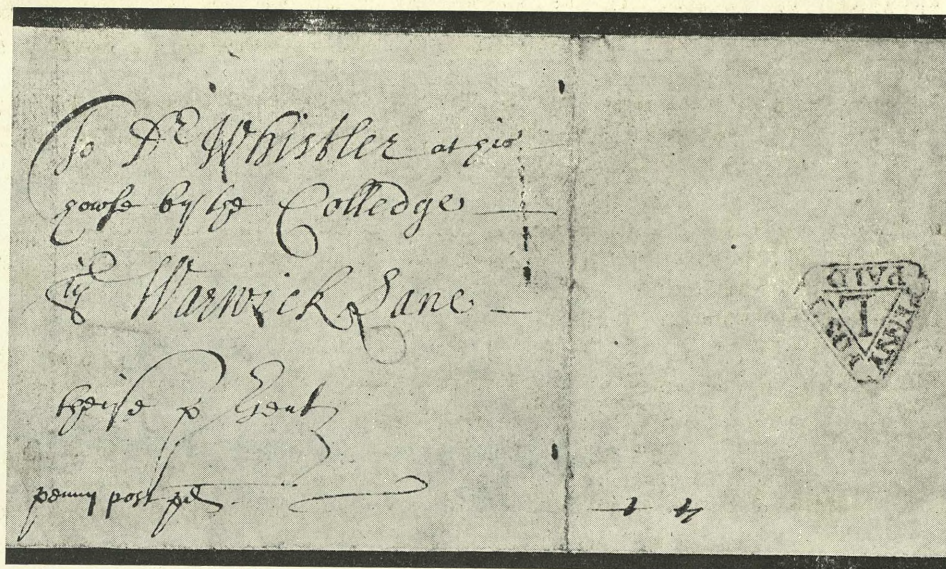 To Dr Whistler at his
howse by the Colledge
in Warwick Lane
theise p
penny post pd
PENNY POST PAID
L